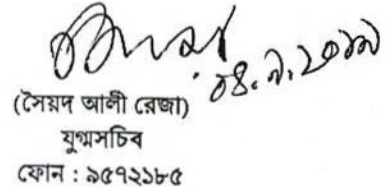 ০৪.৯.২০১৭
(সৈয়দ আলী রেজা)
যুগ্মসচিব
ফোন : ৯৫৭২১৮৫